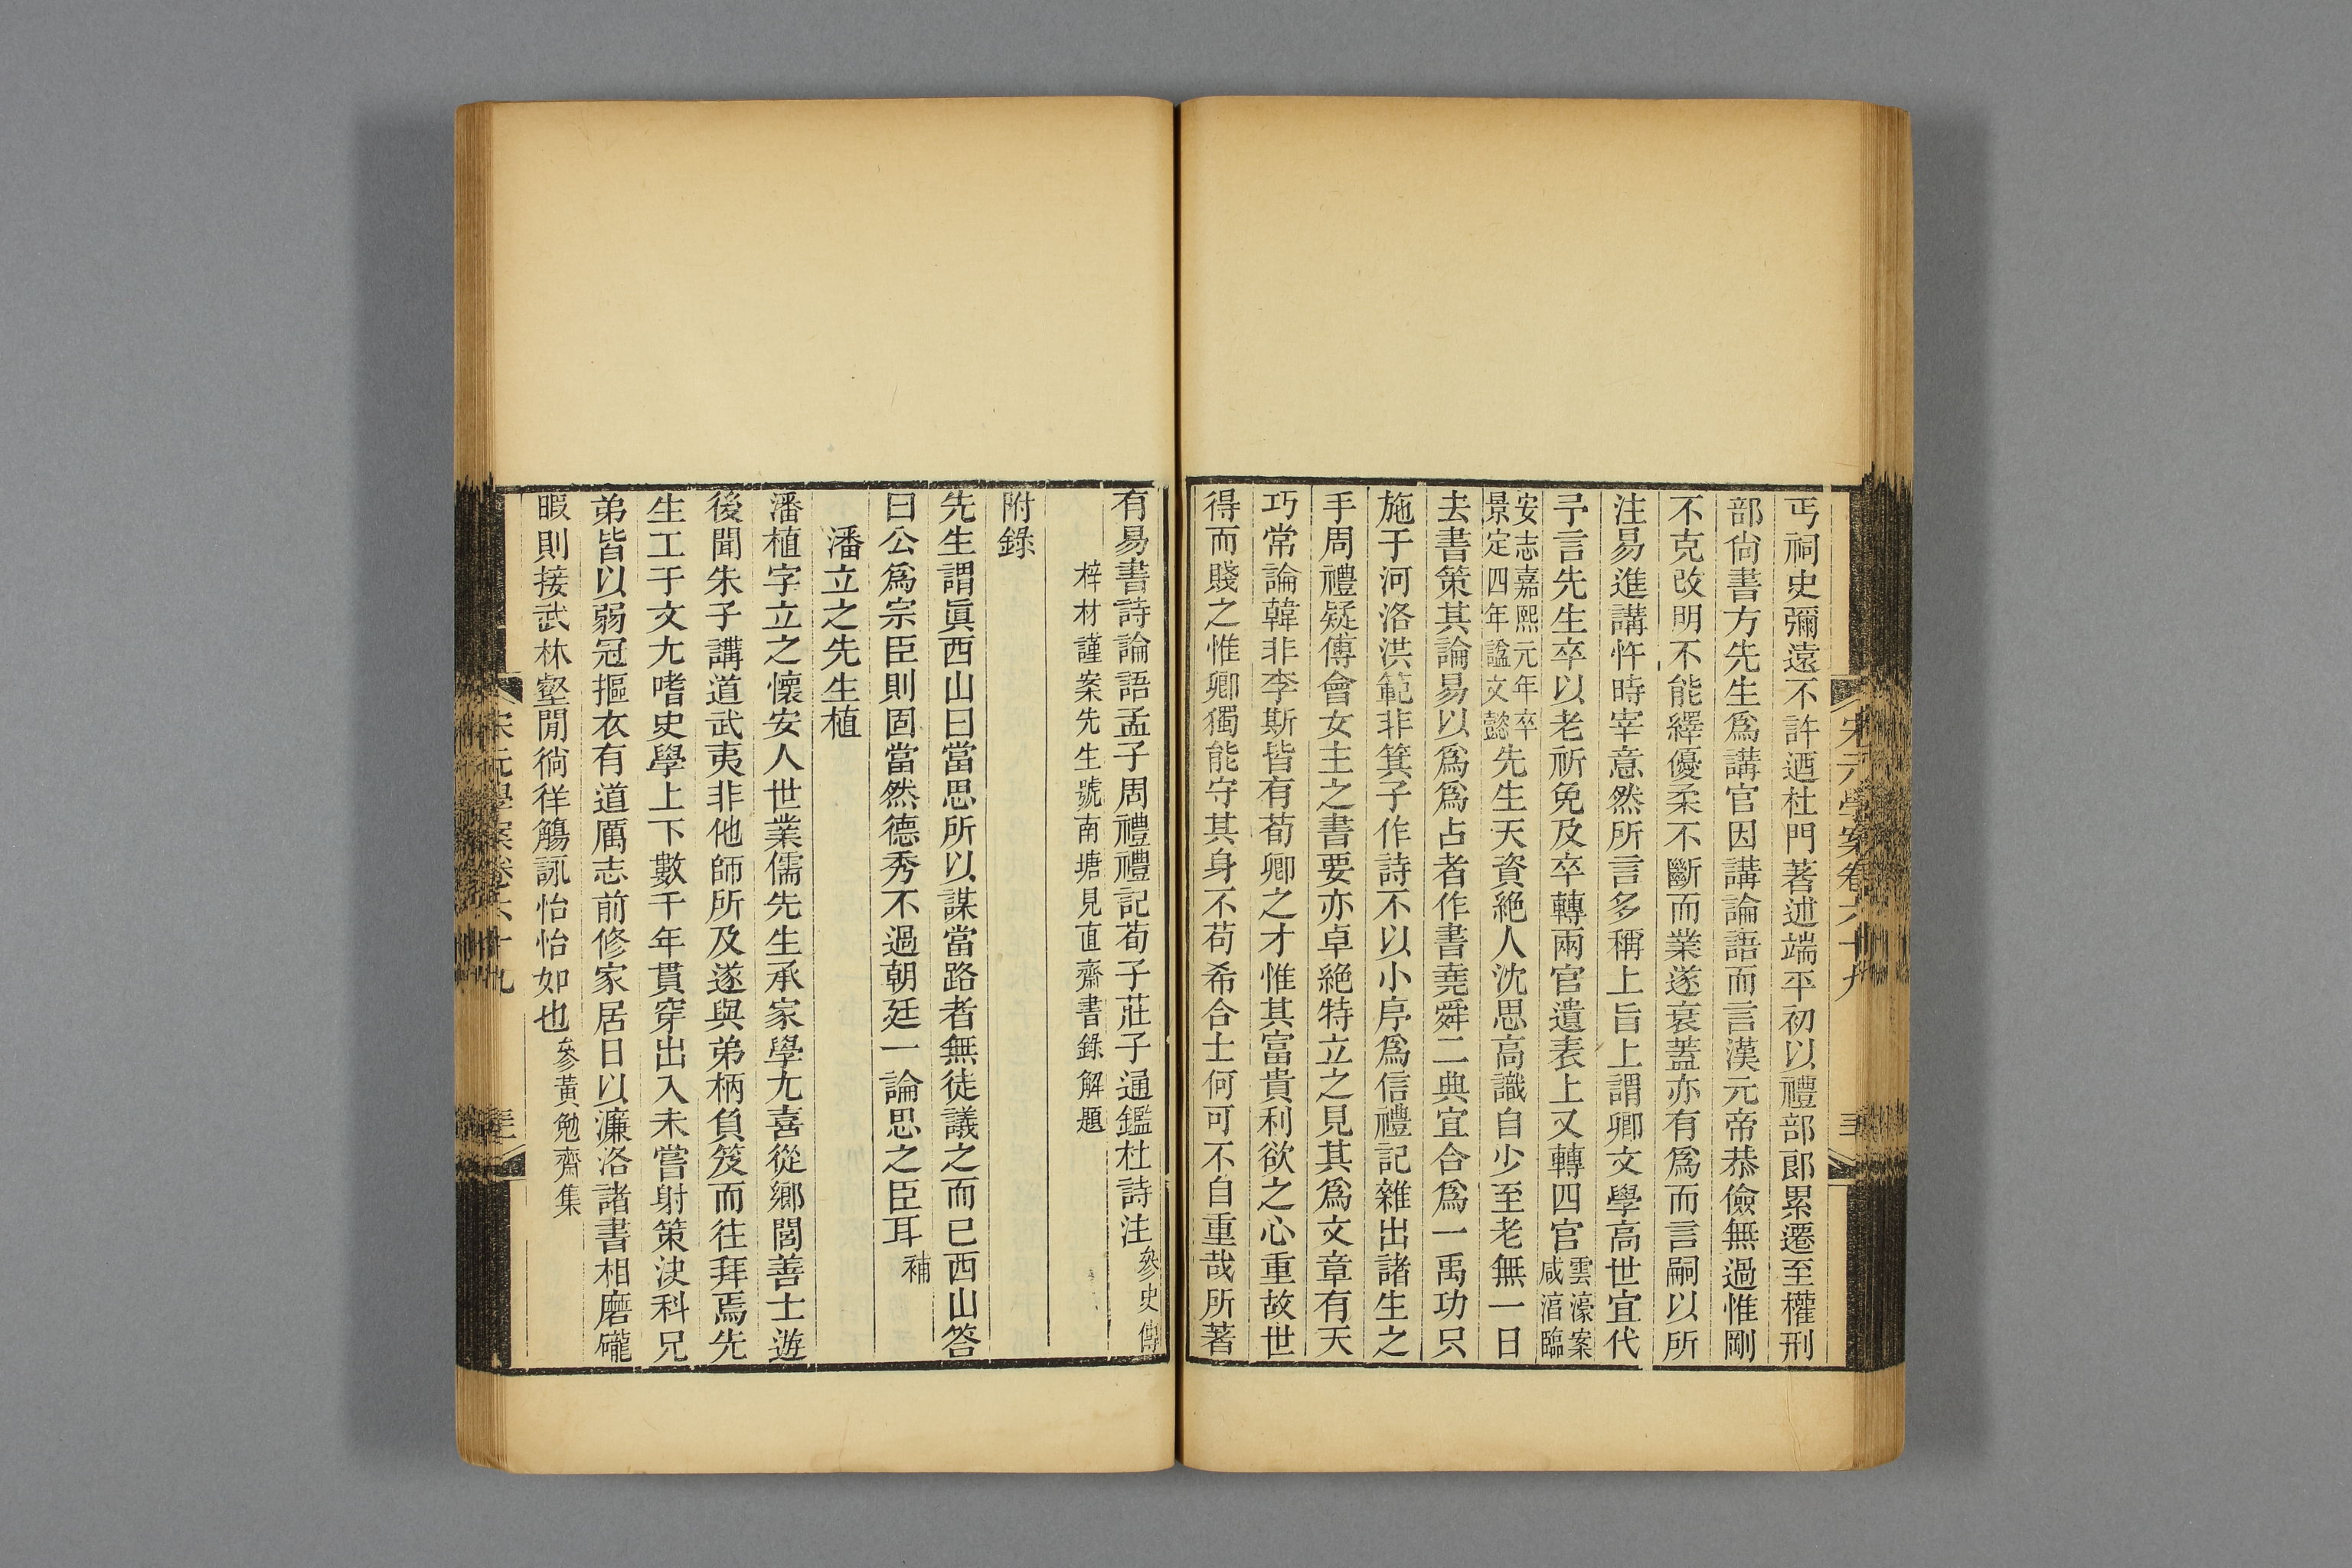 丐祠史彌遠不許迺杜門著述端平初以禮部郞累遷至權刑
部尙書方先生爲講官因講論語而言漢元帝恭儉無過惟剛
不克改明不能繹優柔不斷而業遂衰蓋亦有爲而言嗣以所
注易進講忤時宰意然所言多稱上旨上謂卿文學高世宜代
予言先生卒以老祈免及卒轉兩官遺表上又轉四官雲濠案咸淯臨
安志嘉熙元年卒景定四年諡文懿先生天資絶人沈思高識自少至老無一日
去書策其論易以爲爲占者作書堯舜二典宜合爲一禹功只
施于河洛洪範非箕子作詩不以小序爲信禮記雜出諸生之
手周禮疑傅會女主之書要亦卓絶特立之見其爲文章有天
巧常論韓非李斯皆有荀卿之才惟其富貴利欲之心重故世
得而賤之惟卿獨能守其身不苟希合士何可不自重哉所著
宋元學案卷六十九
有易書詩論語孟子周禮禮記荀子莊子通鑑杜詩注參史傳
梓材謹案先生號南塘見直齋書錄解題
附錄
先生謂眞西山曰當思所以謀當路者無徒議之而已西山答
曰公爲宗臣則固當然德秀不過朝廷一論思之臣耳補
潘立之先生植
潘植字立之懷安人世業儒先生承家學尤喜從鄉閭善士遊
後聞朱子講道武夷非他師所及遂與弟柄負笈而往拜焉先
生工于文尤嗜史學上下數千年貫穿出入未嘗射策決科兄
弟皆以弱冠摳衣有道厲志前修家居日以濂洛諸書相磨礲
暇則接武林壑閒徜徉觴詠怡怡如也參黃勉齋集
宋元學案卷六十九